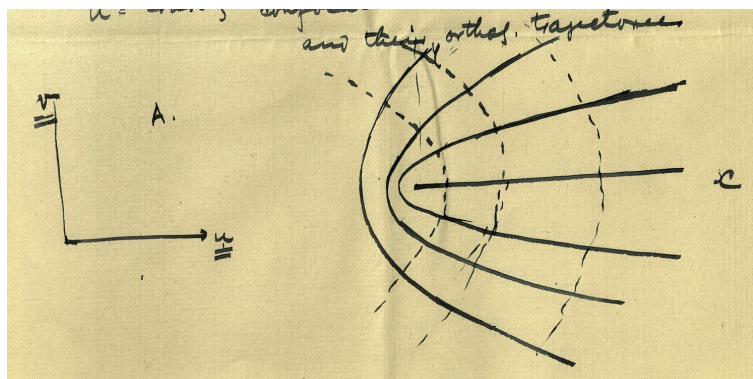 u =
and their orthog. trajectories
v
A.
C
u